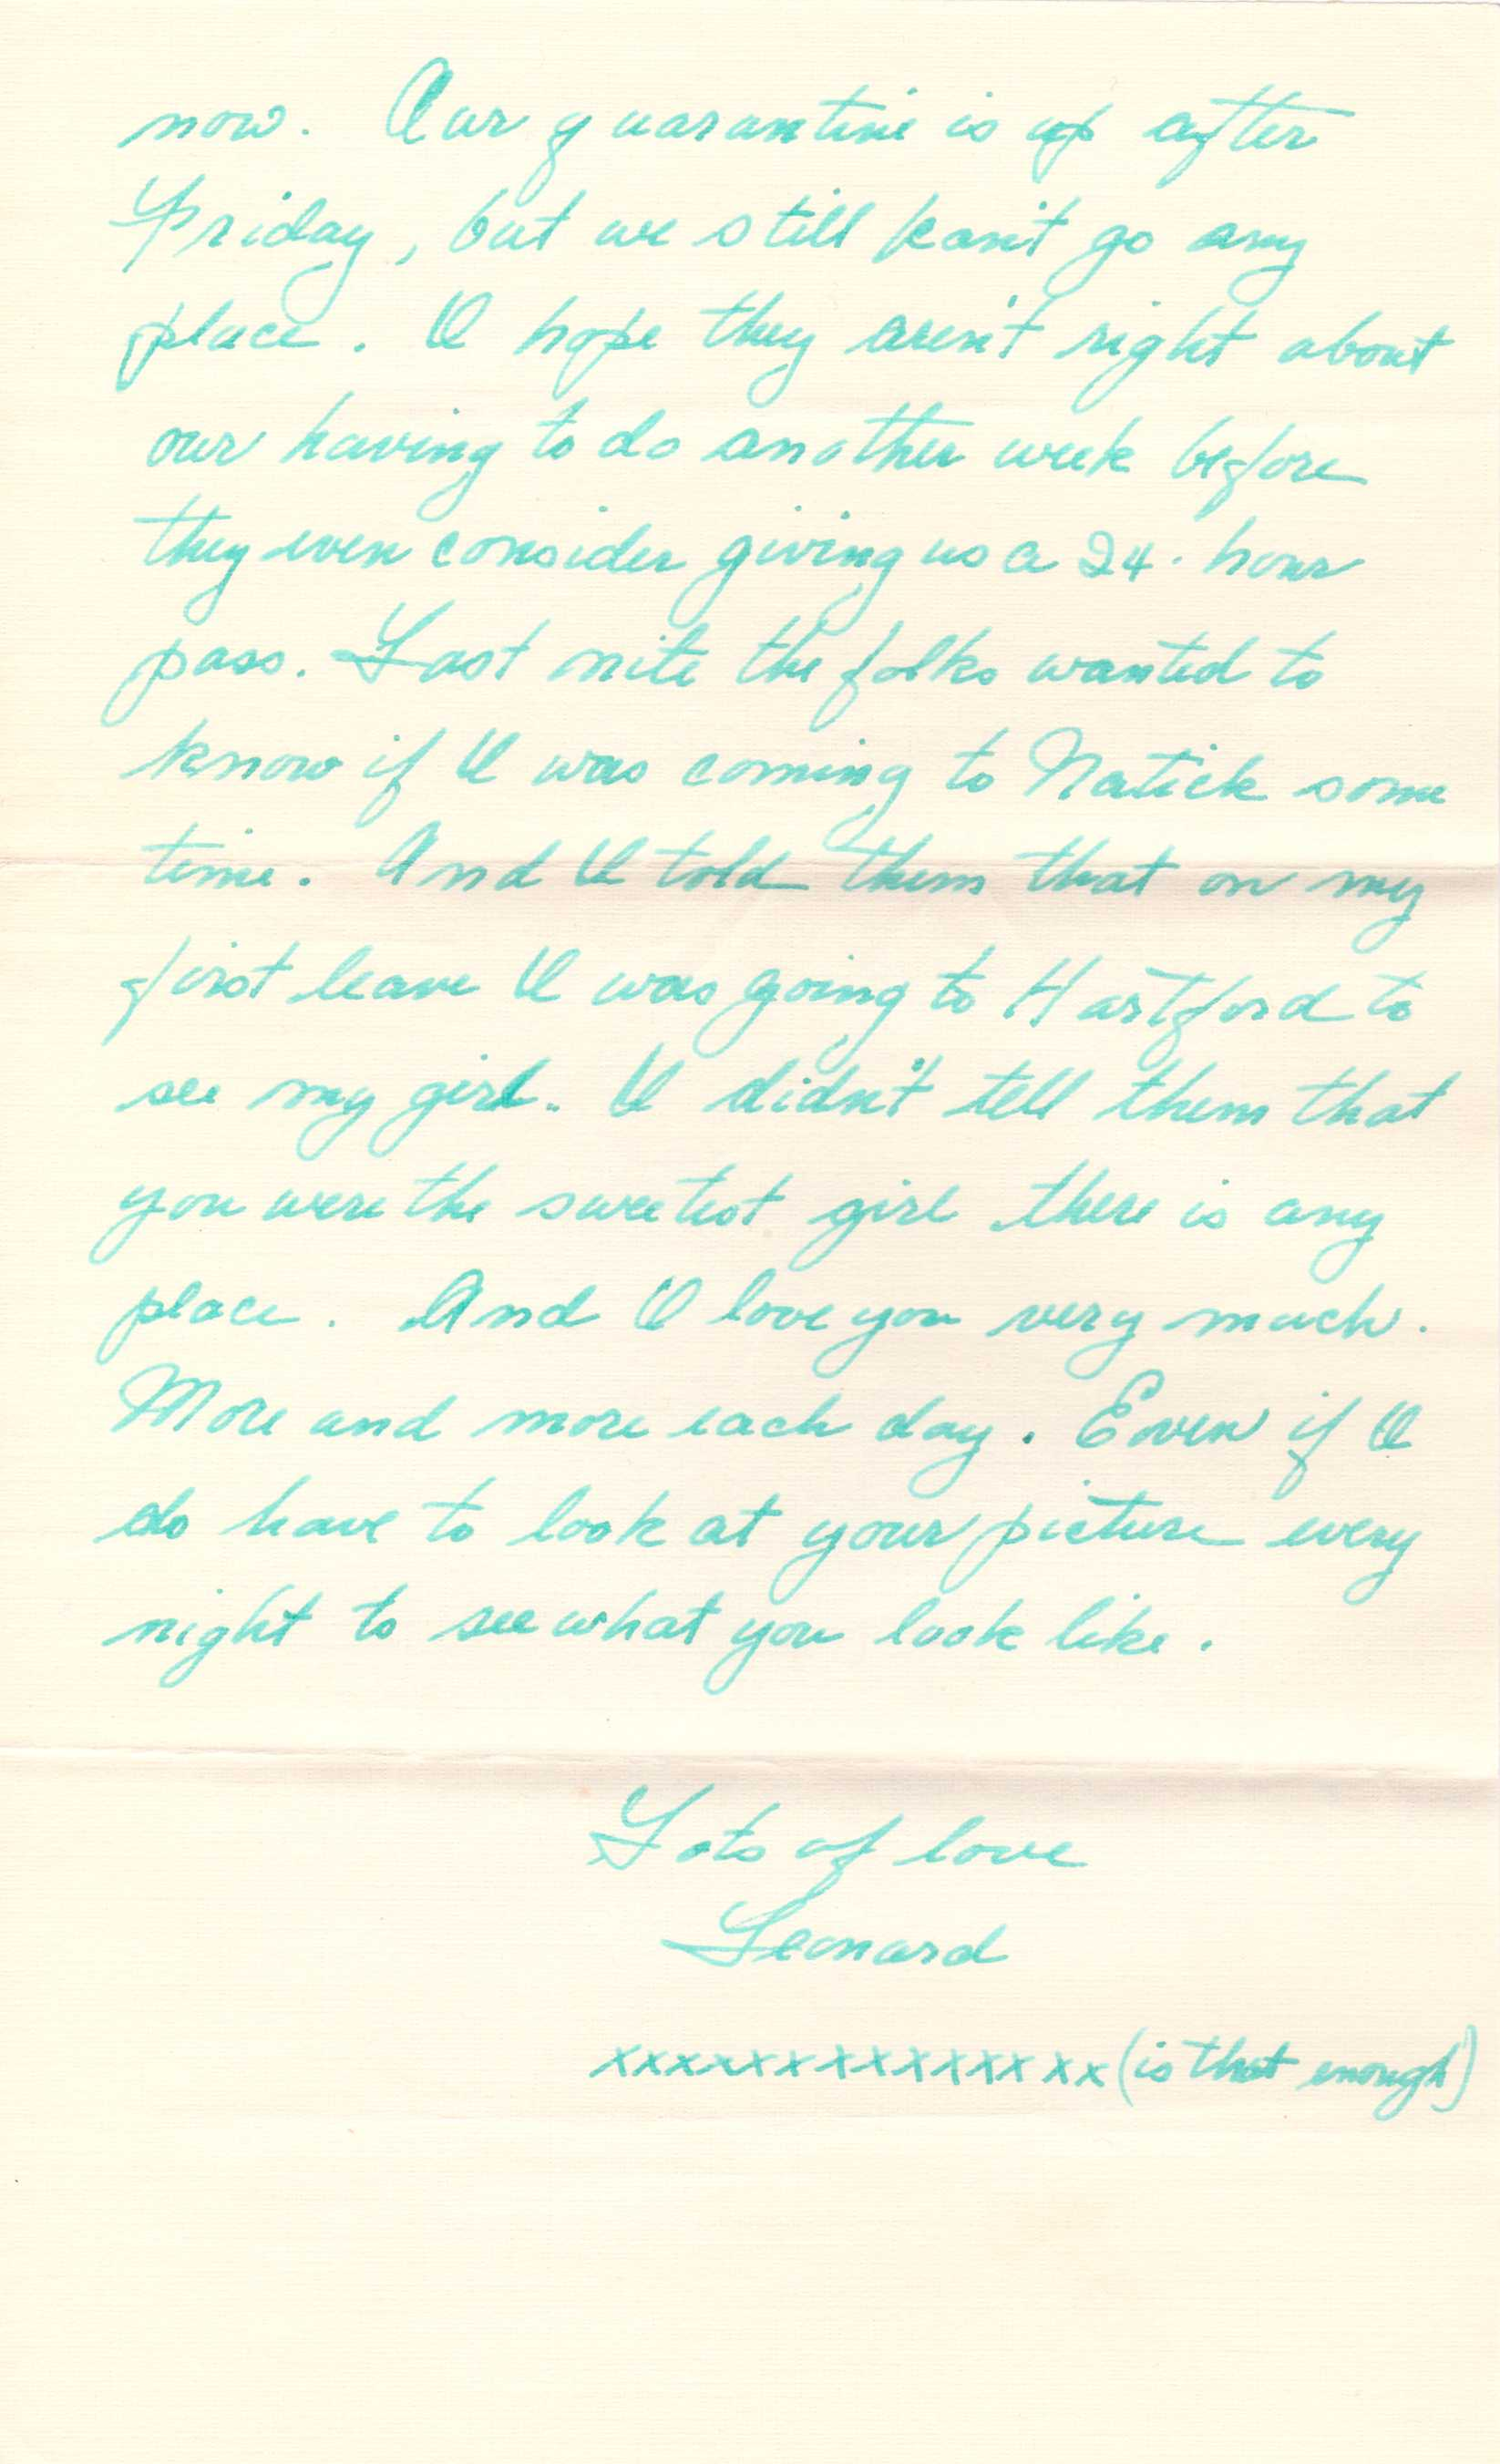 now. Our quarantine is up after
Friday, but we still can't go any
place. I hope they aren't right about
our having to do another week before
they even consider giving us a 24-hour
pass. Last nite the folks wanted to
know if I was coming to Natick some
time. And I told them that on my
first leave I was going to Hartford to
see my girl. I didn't tell them that
you were the sweetest girl there is any
place. And I love you very much.
More and more each day. Even if I
do have to look at your picture every
night to see what you look like.
Lots of love
Leonard
xxxxxxxxxxxxxxx (is that enough)